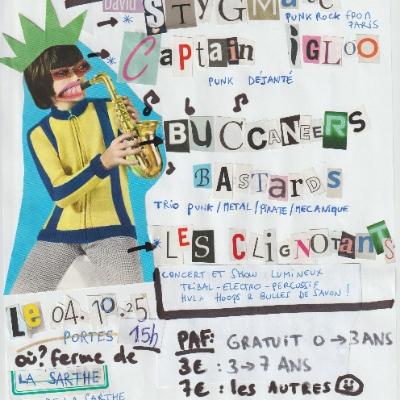 David
STYGMATE
PUNK ROCK FROM
PARIS
* CAPTAIN iGLOO
PUNK DÉJANTÉ
BUCCANEERS
BASTARDS
TRIO PUNK/METAL/PIRATE/MECANIQUE
* LES CLIGNOTANTS
CONCERT ET SHOW LUMINEUX
TRIBAL-ELECTRO-PERCUSSIF
HULA HOOPS & BULLES DE SAVON !
Le 04.10.25
PORTES 15h
où? ferme de
LA SARTHE
DE LA SARTHE
PAF: GRATUIT 0→3 ANS
3€ : 3→7 ANS
7€ : les AUTRES